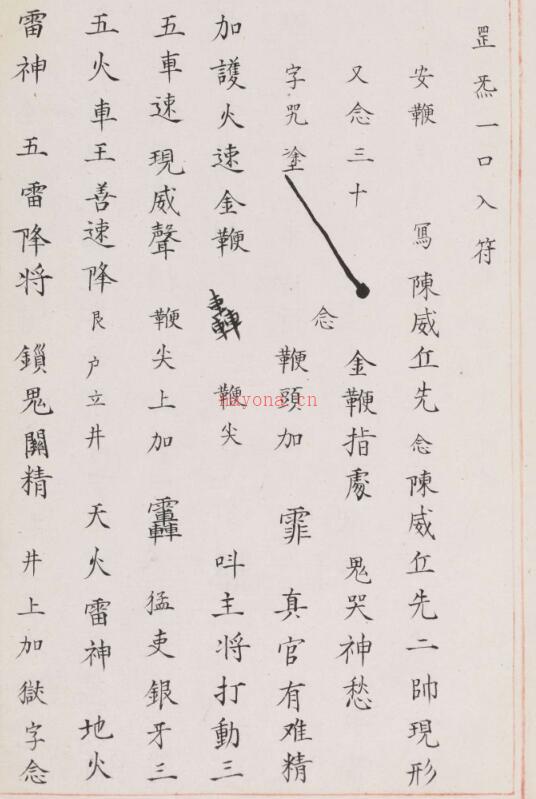 罡炁一口入符
安鞭 寫陳威丘先念陳威丘先二帥現形
又念三十 金鞭指處 鬼哭神愁
字咒塗 念 鞭頭加 霏 真官有难精
加護火速金鞭 轟 鞭尖 呌主将打動三
五車速現威聲 鞭尖上加 猛吏銀牙三
五火車王善速降 艮户立井 天火雷神 地火
雷神 五雷降将 鎖鬼關精 井上加獄字念
nayona.cn